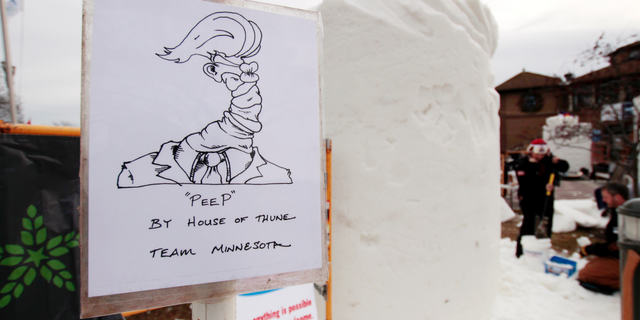 "PEEP"
BY HOUSE OF THUNE
TEAM MINNESOTA
anything is possible